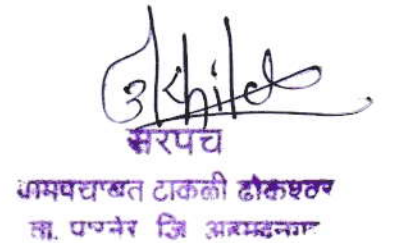 सरपंच
ग्रामपंचायत टाकळी ढोकेश्वर
ता. पारनेर जि अहमदनगर